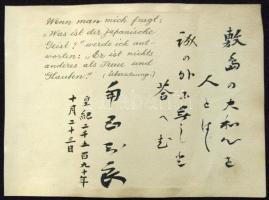 Wenn man mich fragt:
„Was ist der japanische
Geist?" werde ich ant-
worten: „Er ist nichts
anderes als Treue und
Glauben." (Übersetzung.)
敷島の大和心を
人とはゞ
誠の外に無しと
答へむ
皇紀二千五百九十年
十月二十三日